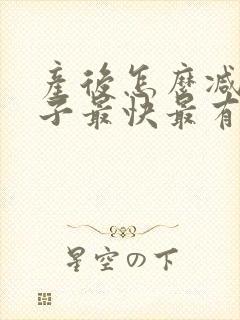 產後怎麼減
子最快最有
星空の下